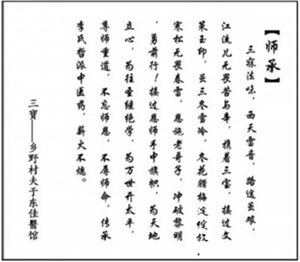 【师承】
三寐法味,西天雷音,路途虽艰,
江流儿无畏苦与辛,携着三宝,接过文
策玉印,虽三冬雪冷,冬花腊梅淀绽放,
寒松无畏春雷,恩施老哥子,冲破黎明
,勇前行!接过恩师手中旗帜,为天地
立心,为往圣继绝学,为万世开太平,
尊师重道,不忘师恩,不辱师命,传承
李氏哲派中医药,薪火不熄。
三寶——乡野村夫于东佳醫馆